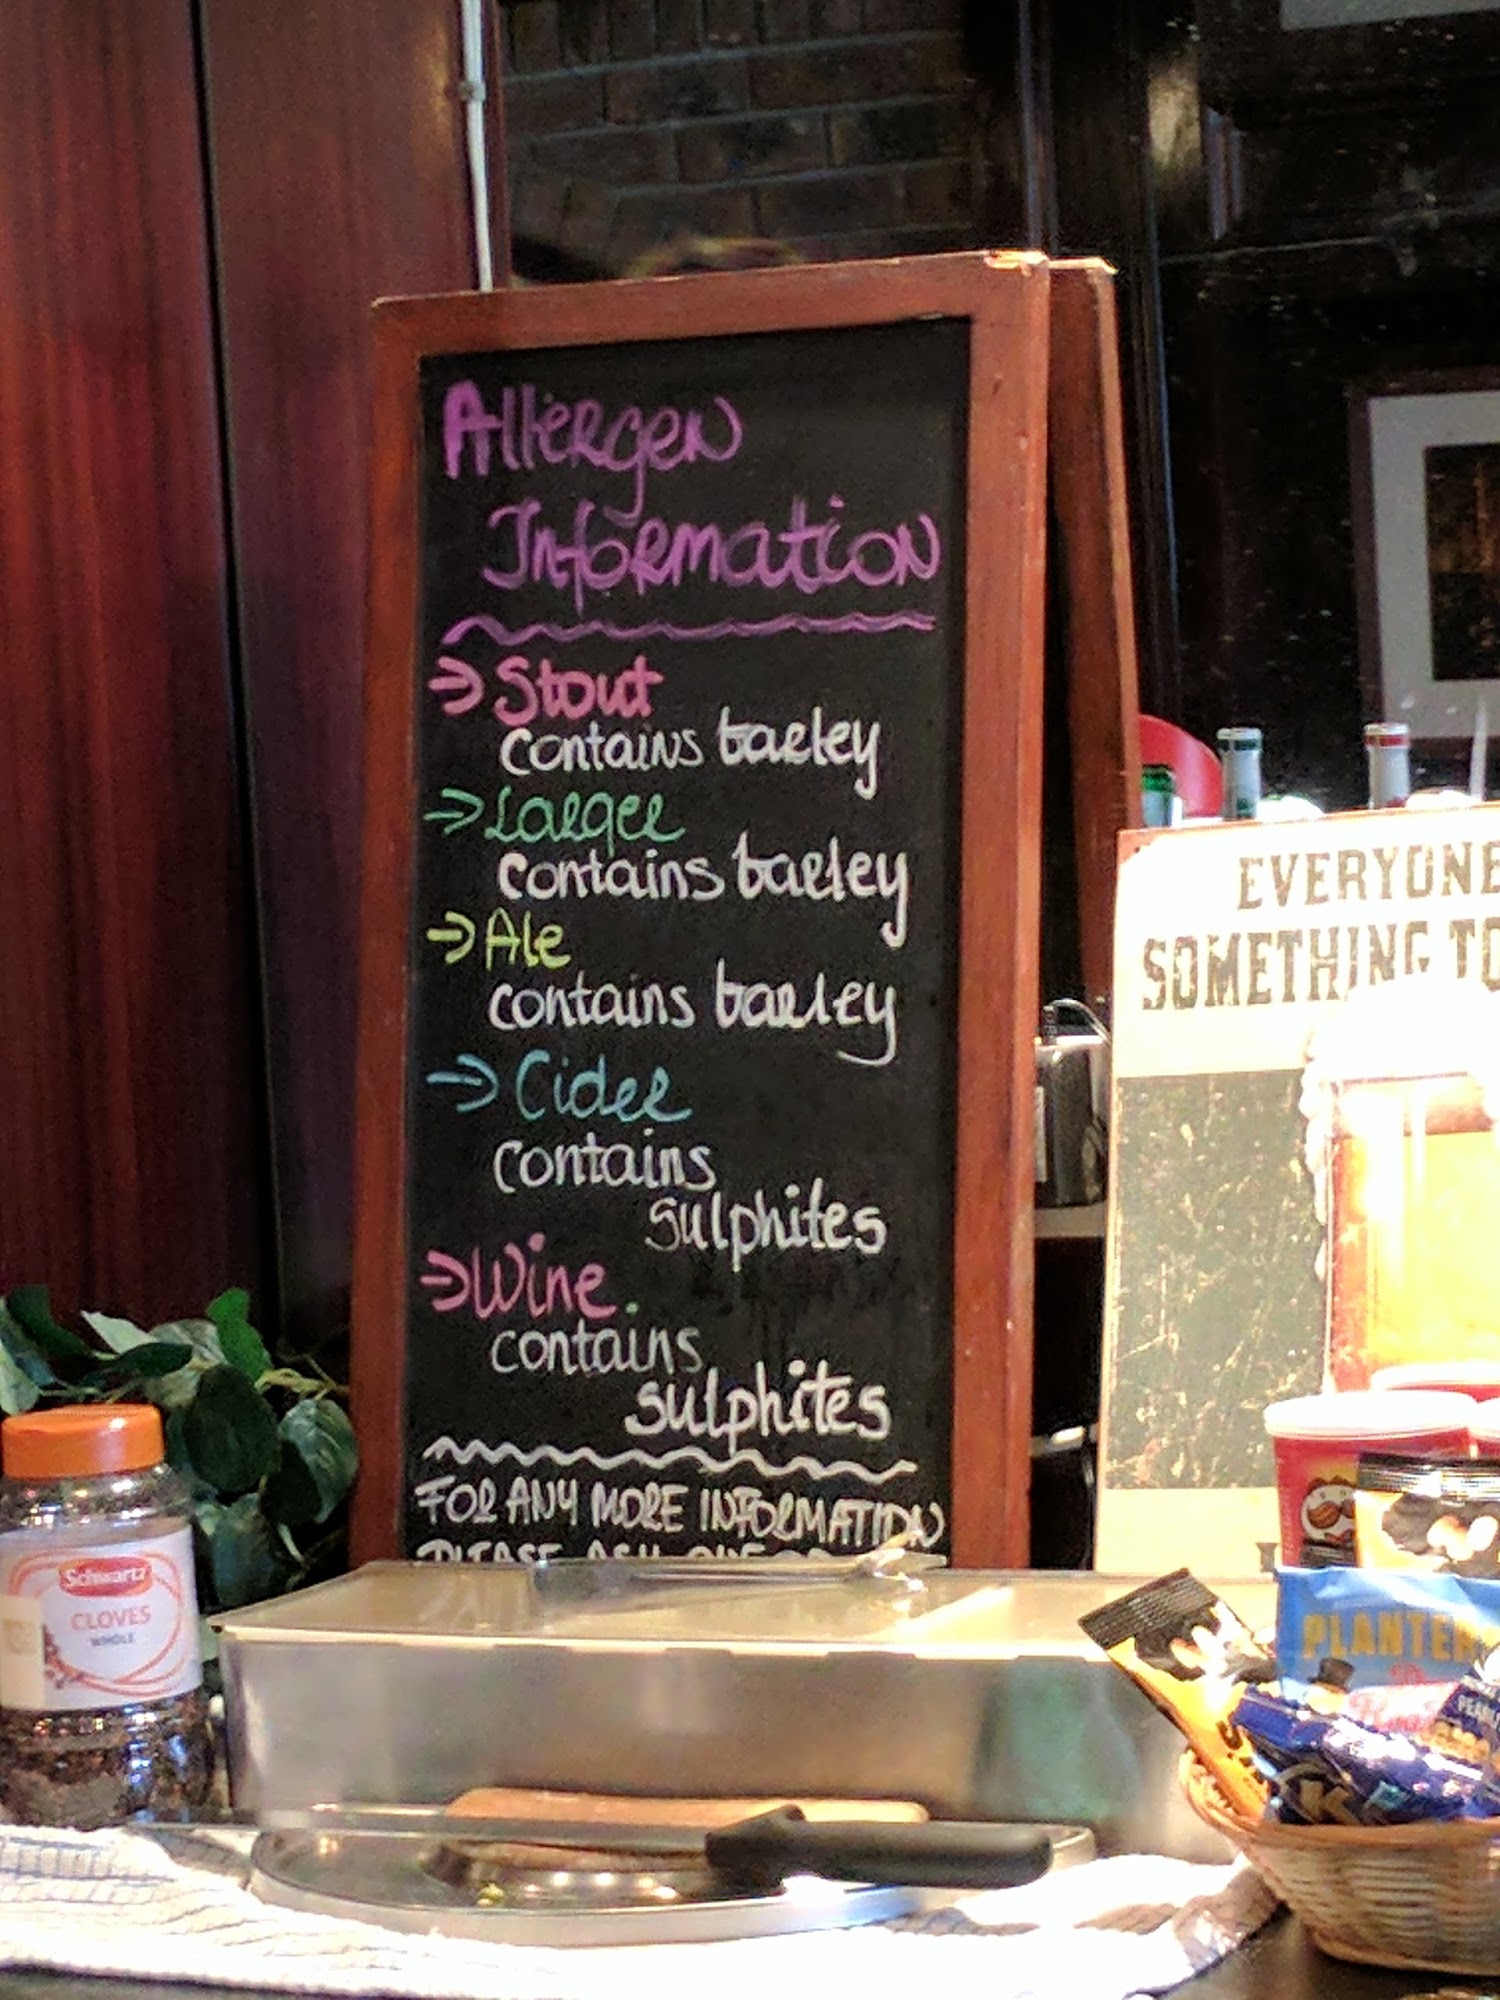 Allergen
Information
→ Stout
contains barley
→ Larger
contains barley
→ Ale
contains barley
→ Cider
contains
sulphites
→ Wine.
contains
sulphites
FOR ANY MORE INFORMATION
PLEASE ASK
EVERYONE
SOMETHING TO
Schwartz
CLOVES
WHOLE
PLANTER